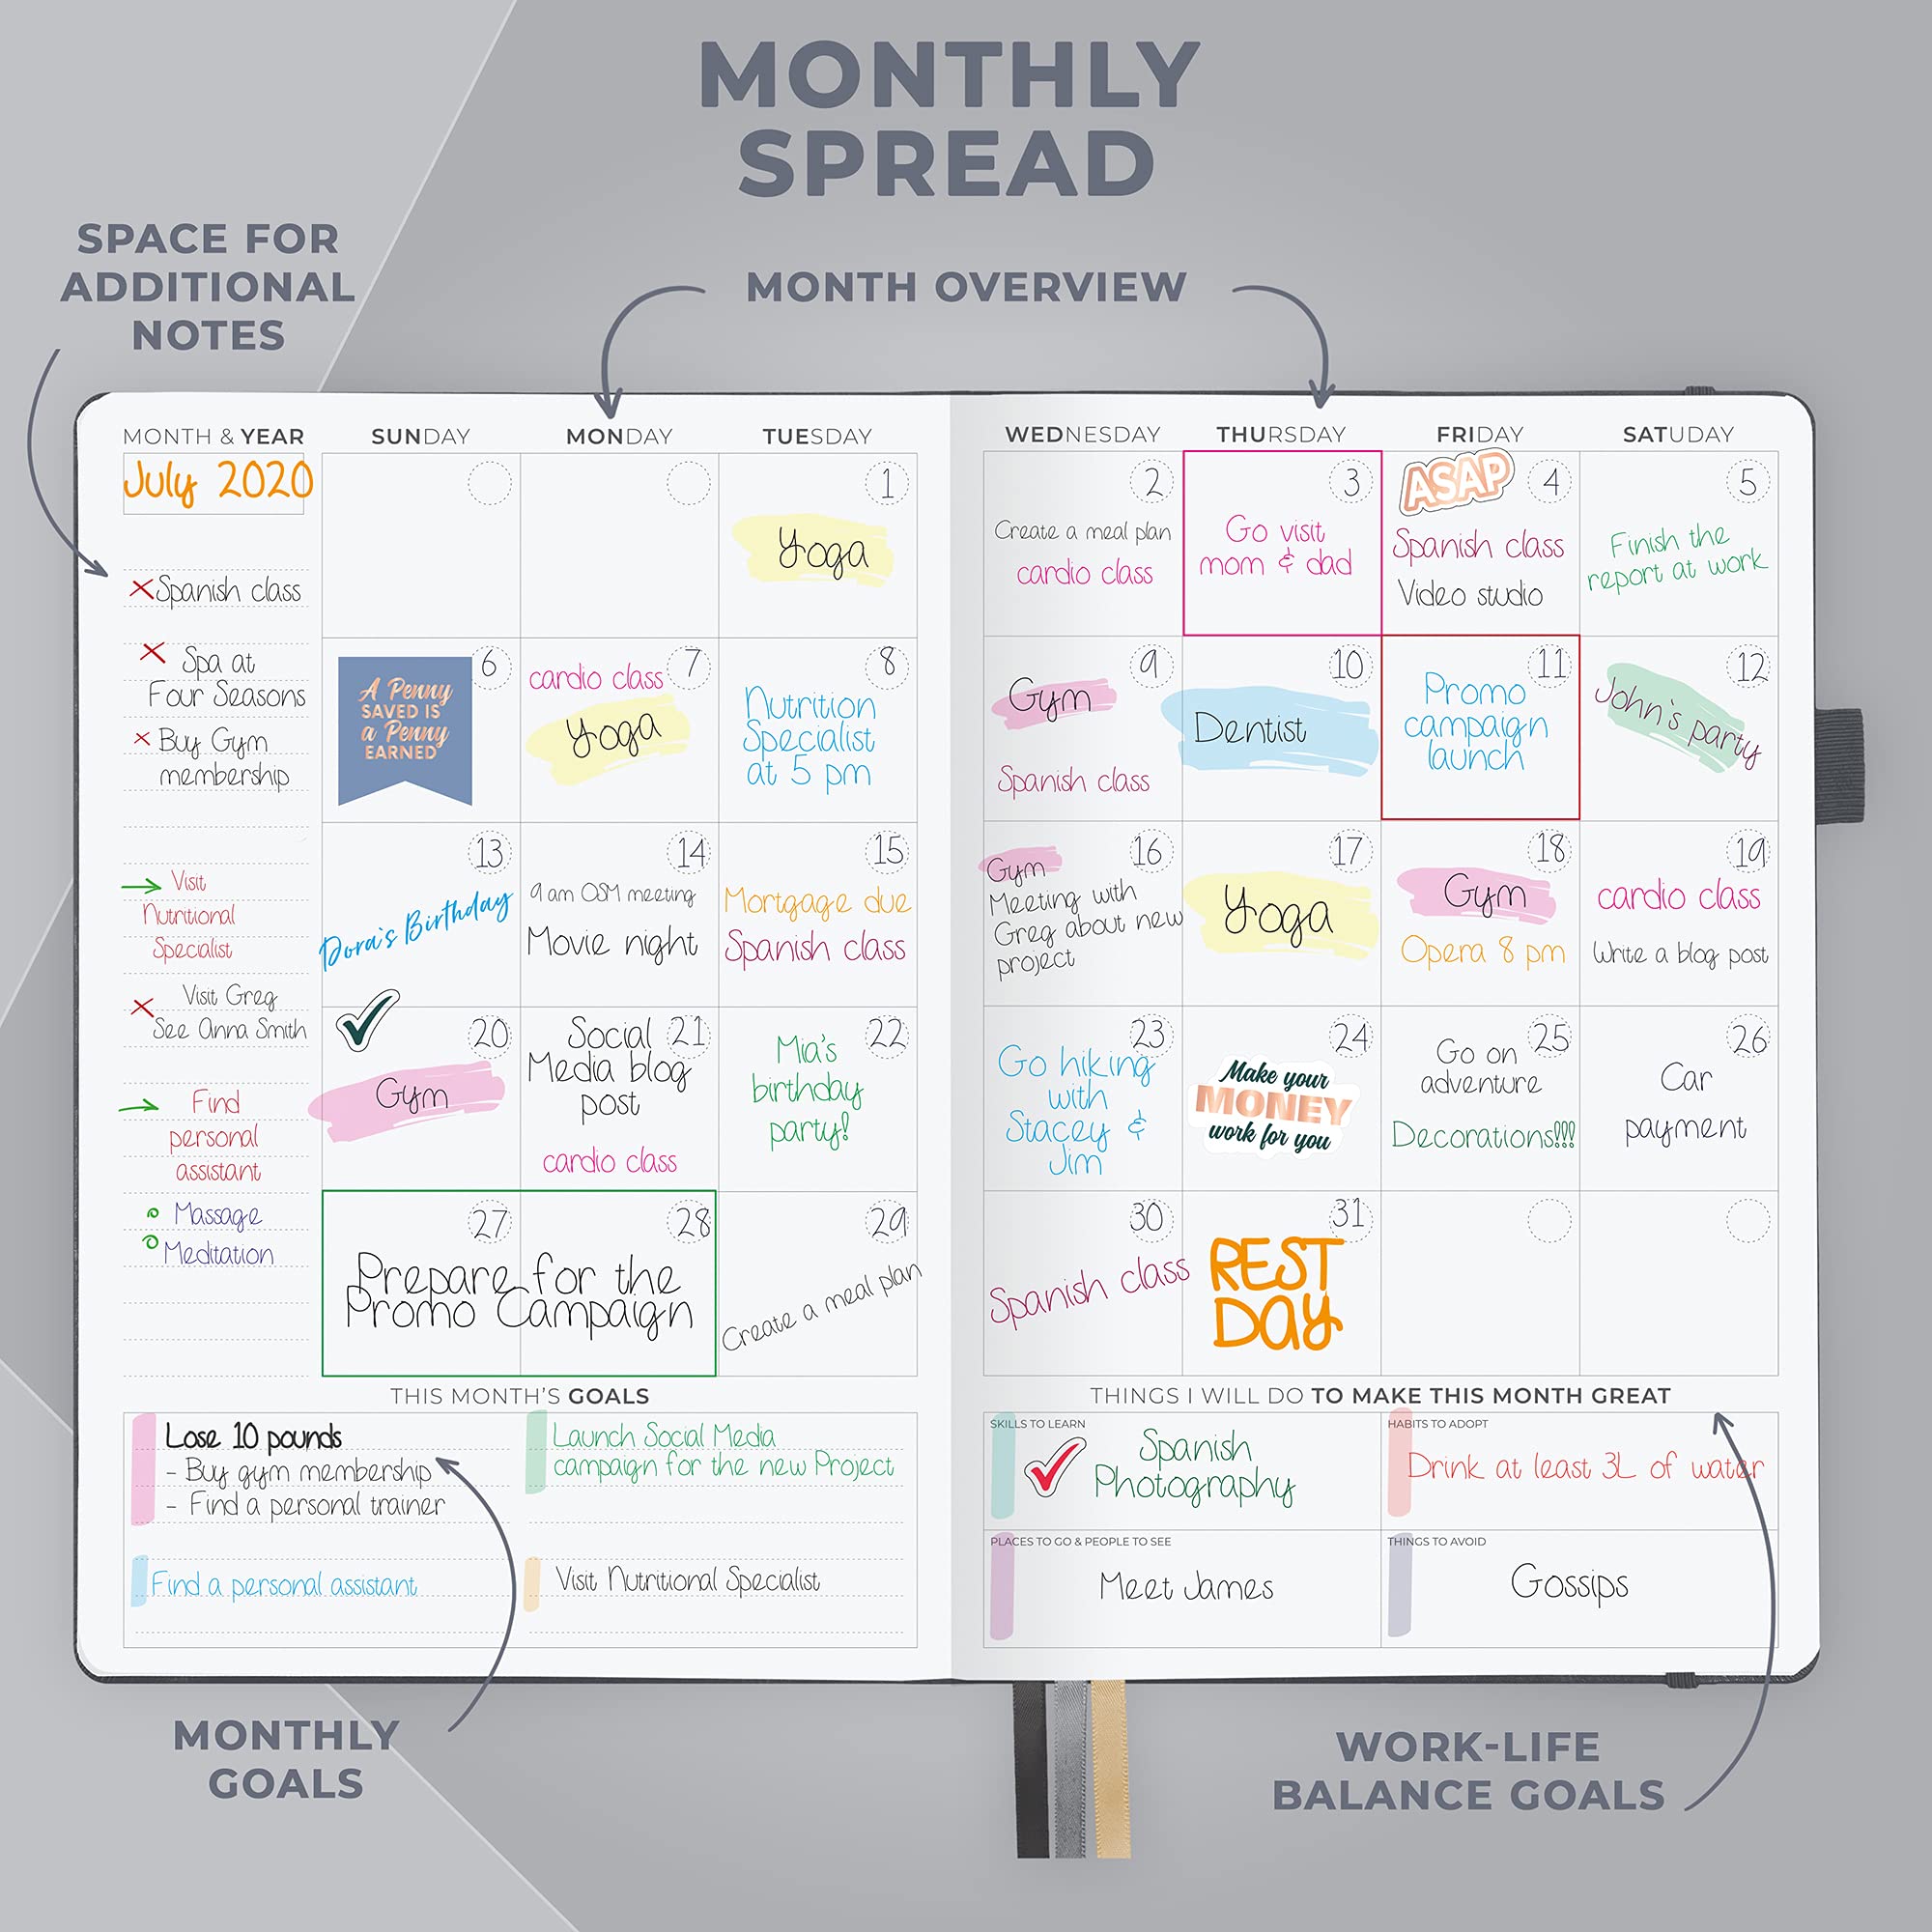 MONTHLY
SPREAD
SPACE FOR
ADDITIONAL
NOTES
MONTH OVERVIEW
MONTH & YEAR
July 2020
Spanish class
Spa at
Four Seasons
Buy Gym
membership
Visit
Nutritional
Specialist
Visit Greg
See Anna Smith
Find
personal
assistant
Massage
Meditation
SUNDAY
MONDAY
TUESDAY
WEDNESDAY
THURSDAY
FRIDAY
SATUDAY
1
Yoga
2
Create a meal plan
cardio class
3
Go visit
mom & dad
ASAP
4
Spanish class
Video studio
5
Finish the
report at work
6
A Penny
SAVED IS
a Penny
EARNED
7
cardio class
Yoga
8
Nutrition
Specialist
at 5 pm
9
Gym
Spanish class
10
Dentist
11
Promo
campaign
launch
12
John's party
13
Dora's Birthday
14
9 am OSM meeting
Movie night
15
Mortgage due
Spanish class
16
Gym
Meeting with
Greg about new
project
17
Yoga
18
Gym
Opera 8 pm
19
cardio class
Write a blog post
20
Gym
21
Social
Media blog
post
cardio class
22
Mia's
birthday
party!
23
Go hiking
with
Stacey &
Jim
24
Make your
MONEY
work for you
25
Go on
adventure
Decorations!!!
26
Car
payment
27
28
Prepare for the
Promo Campaign
29
Create a meal plan
30
Spanish class
31
REST
DAY
THIS MONTH'S GOALS
Lose 10 pounds
- Buy gym membership
- Find a personal trainer
Find a personal assistant
Launch Social Media
campaign for the new Project
Visit Nutritional Specialist
THINGS I WILL DO TO MAKE THIS MONTH GREAT
SKILLS TO LEARN
Spanish
Photography
HABITS TO ADOPT
Drink at least 3L of water
PLACES TO GO & PEOPLE TO SEE
Meet James
THINGS TO AVOID
Gossips
MONTHLY
GOALS
WORK-LIFE
BALANCE GOALS